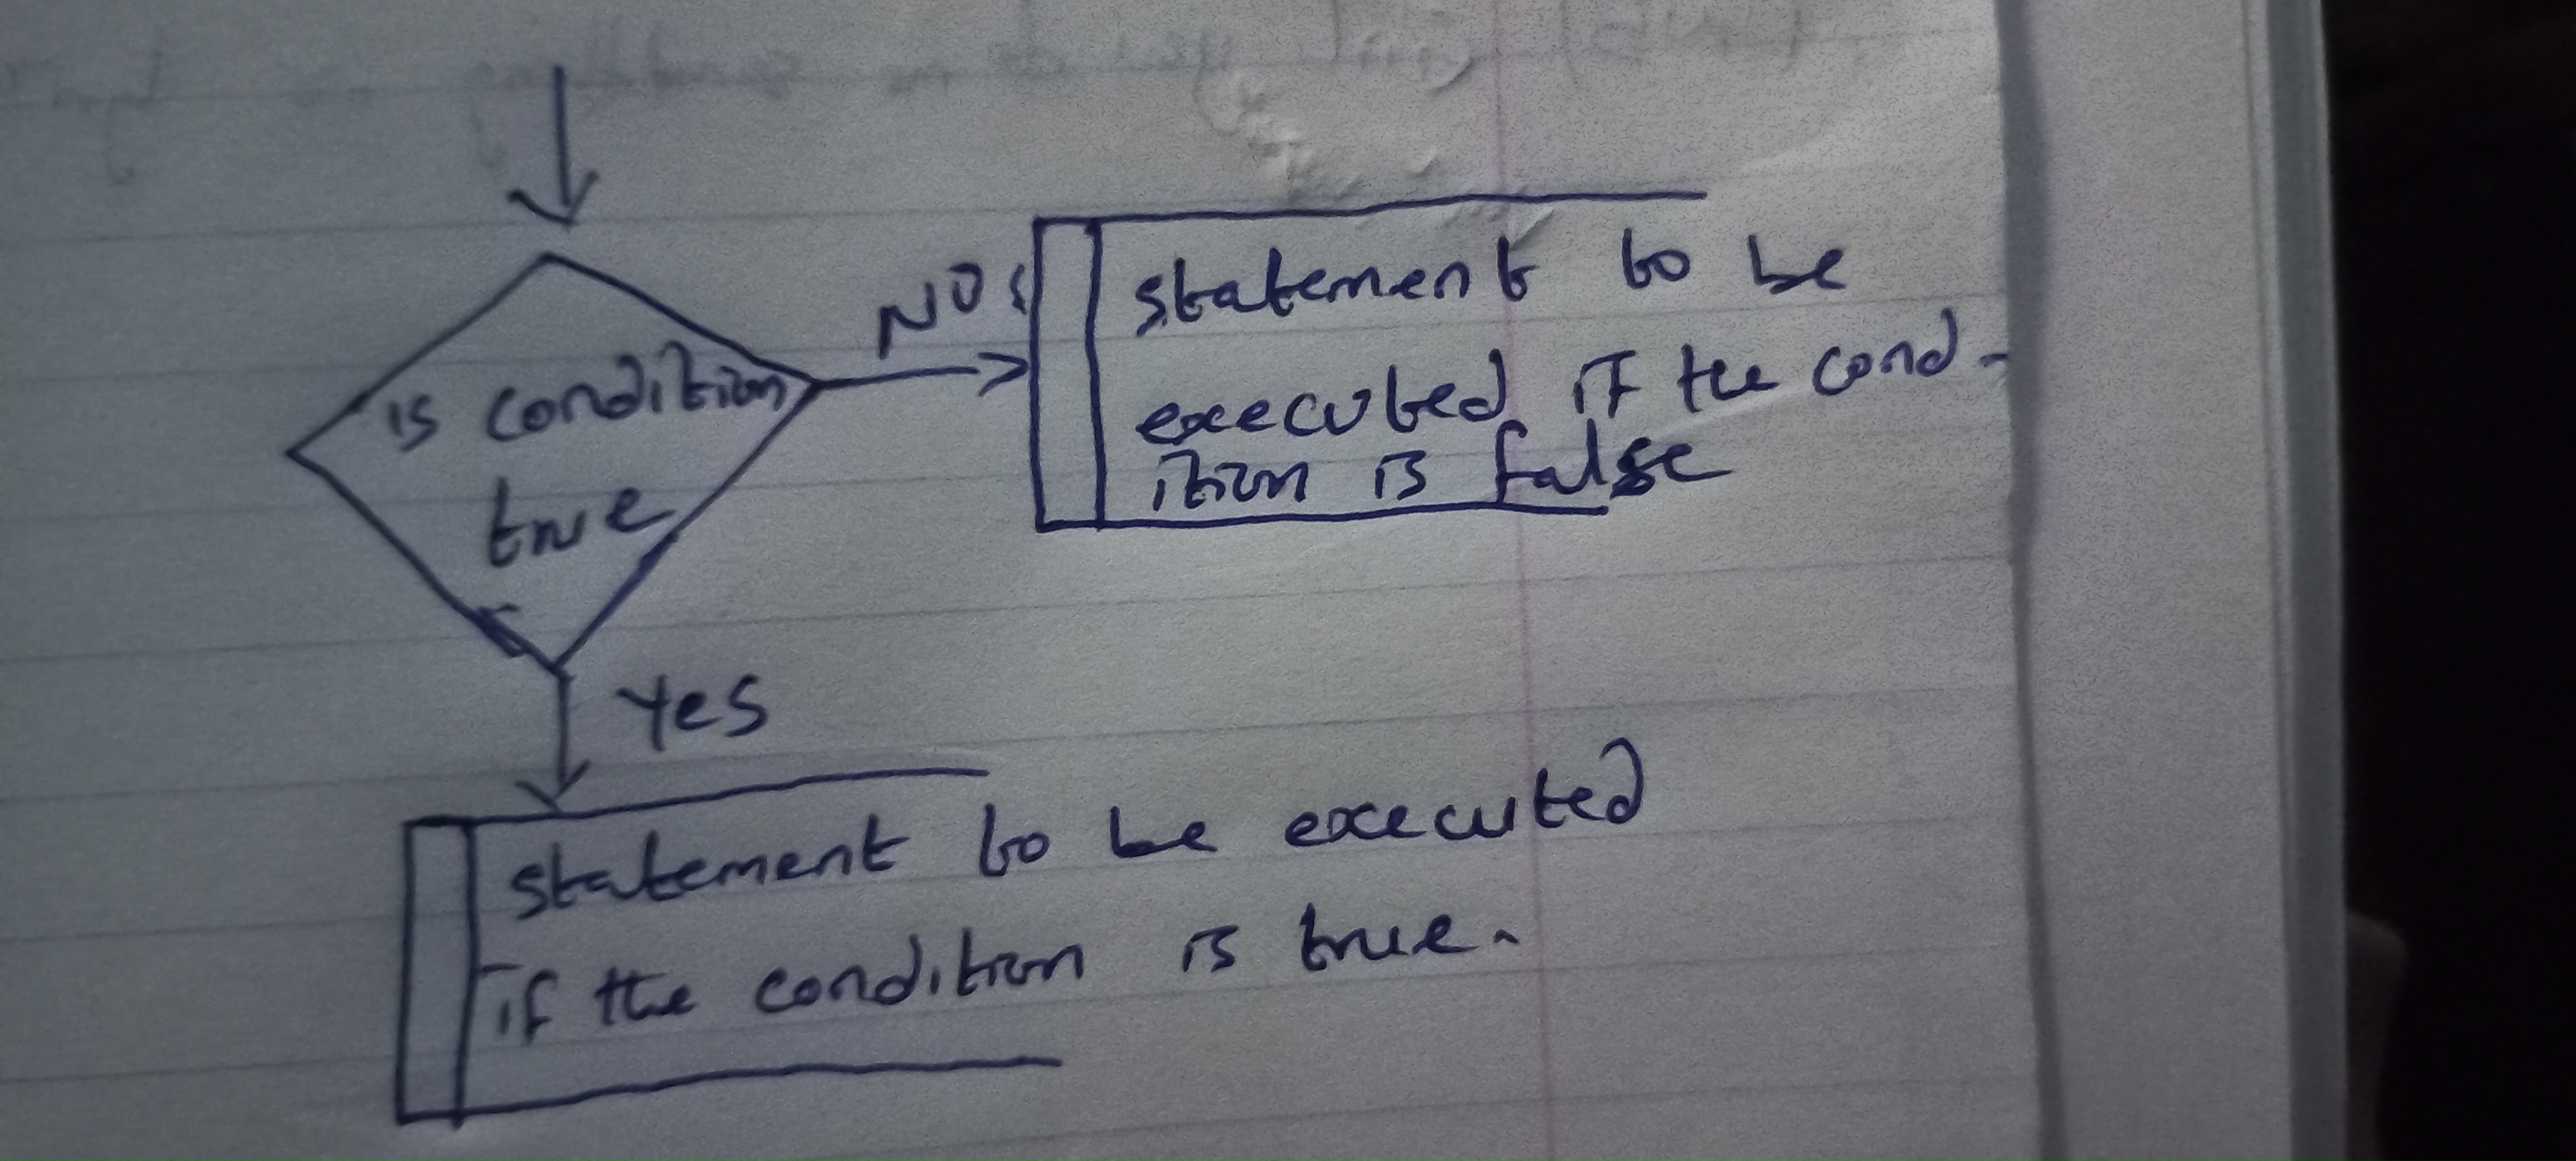 is condition
true
No
statement to be
executed if the cond-
ition is false
Yes
statement to be executed
if the condition is true.